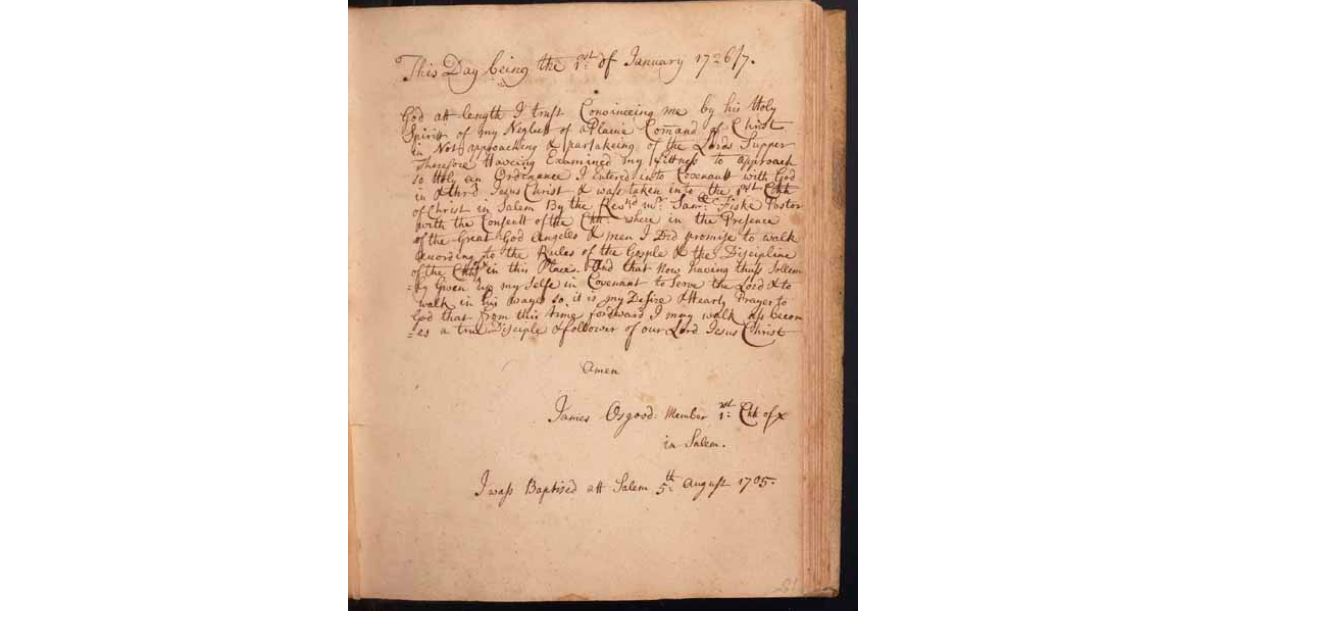 This Day being the 1st of January 1726/7.
God att length I trust Convinceing me by his Holy
Spirit of my Neglect of a Plaine Comand of Christ
in Not approaching & partakeing of the Lords Supper
Therefore Haveing Examined my fittness to approach
so Holy an Ordinance I Entered into Covenant with God
in & thrō Jesus Christ & wass taken into the 1st Chh
of Christ in Salem By the Revrd mr. Samll Fiske Pastor
with the Consent of the Chh: where in the Presence
of the Great God Angels & men I Did promise to walk
according to the Rules of the Gosple & the Discipline
of the Chh in this Place. And that Now having thuss Sollem
=ly Given up my Selfe in Covenant to Serve the Lord & to
walk in his wayes so it is my Desire & Hearty Prayer to
God that from this time fordward I may walk ass becom
=es a true Disciple & follower of our Lord Jesus Christ
Amen
James Osgood: Member 1st: Chh of x
in Salem.
I wass Baptised att Salem 5th: August 1705.